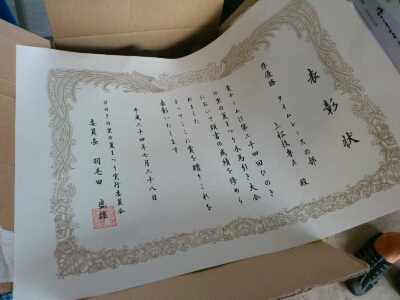 表彰状
準優勝 タイムレースの部
殿
貴チームは第二十四回ひのき
の里の夏まつり水馬引き大会
において頭書の成績を修めら
れました
よってここに賞を贈りこれを
表彰いたします
平成二十四年七月二十八日
ひのきの里の夏まつり実行委員会
委員長 羽毛田 盛雄